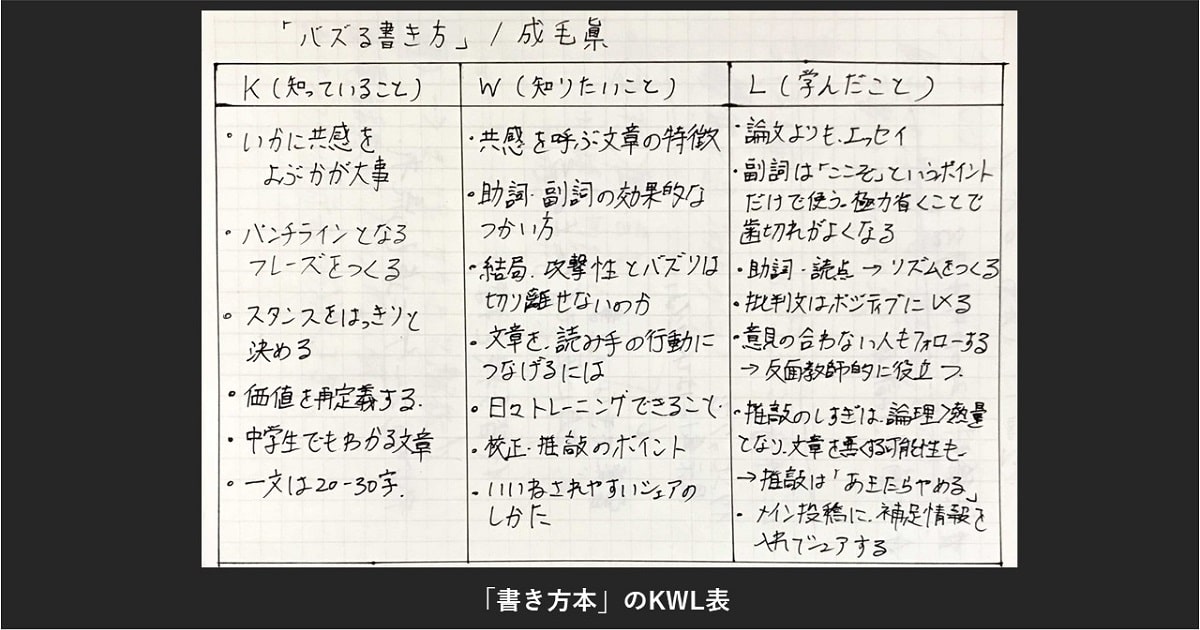 「バズる書き方」/ 成毛眞
K (知っていること)
・いかに共感を
よぶかが大事
・パンチラインとなる
フレーズをつくる
・スタンスをはっきりと
決める
・価値を再定義する.
・中学生でもわかる文章
・一文は20-30字.
W (知りたいこと)
・共感を呼ぶ文章の特徴
・助詞・副詞の効果的な
つかい方
・結局、攻撃性とバズりは
切り離せないのか
・文章を、読み手の行動に
つなげるには
・日々トレーニングできること.
・校正・推敲のポイント
・いいねされやすいシェアの
しかた
L (学んだこと)
・論文よりも、エッセイ
・副詞は「ここぞ」というポイント
だけで使う。極力省くことで
歯切れがよくなる
・助詞・読点→リズムをつくる
・批判文はポジティブに〆る
・意見の合わない人もフォローする
→反面教師的に役立つ.
・推敲のしすぎは、論理>熱量
となり、文章を悪くする可能性も、
→推敲は「あきたらやめる」
・メイン投稿に、補足情報を
入れてシェアする
「書き方本」のKWL表